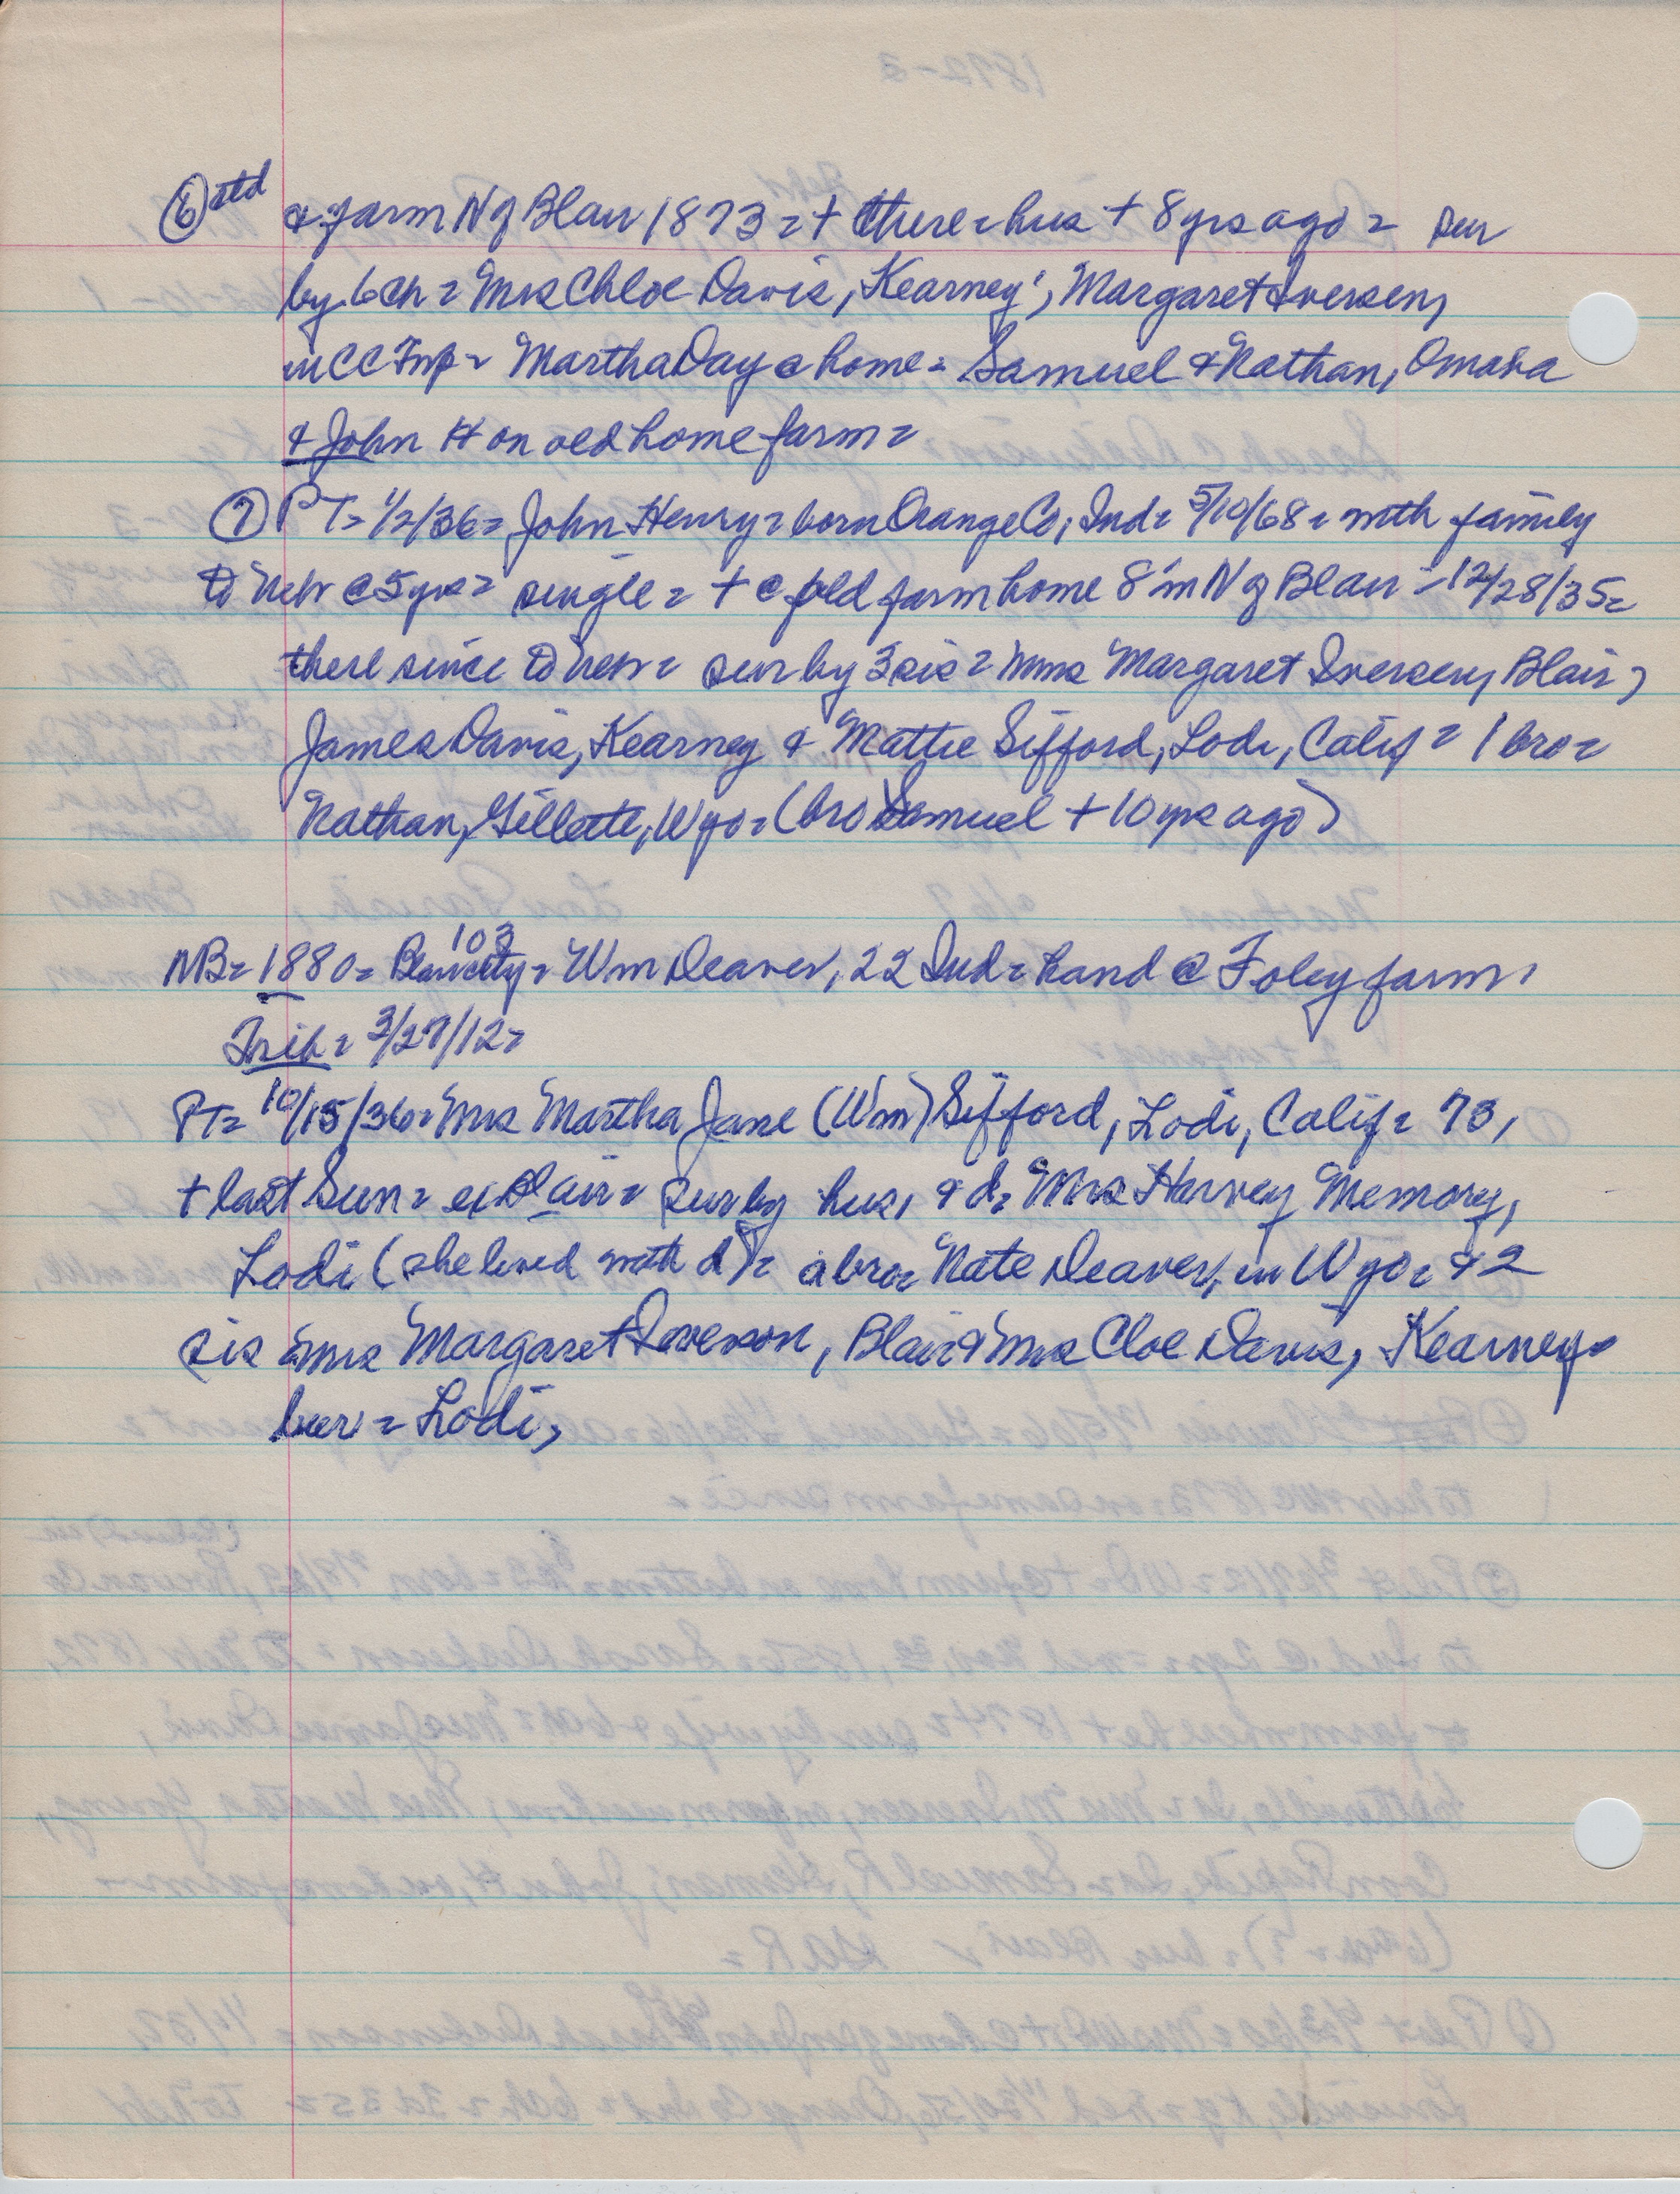 ⑥ ctd & farm N of Blair 1873 = + there = hus + 8 yrs ago = sur
by 6 ch = Mrs Chloe Davis, Kearney; Margaret Iversen,
in CC Twp = Martha Day @ home = Samuel & Nathan, Omaha
& John H on old home farm =
⑦ PT = 1/2/36 = John Henry = born Orange Co, Ind = 5/10/68 = with family
to Neb @ 5 yrs = single = + @ old farm home 8 m N of Blair = 12/28/35 =
there since to Neb = sur by 3 sis = Mmes Margaret Iversen, Blair,
James Davis, Kearney & Mattie Sifford, Lodi, Calif = 1 bro =
Nathan, Gillette, Wyo = (bro Samuel + 10 yrs ago)
103
NB = 1880 = = Wm Deaver, 22 Ind = hand @ Foley farm,
Trib = 3/27/12 =
PT = 10/15/36 = Mrs Martha Jane (Wm) Sifford, Lodi, Calif = 73,
+ last Sun = ex Blair = sur by hus, & d = Mrs Harvey Memory,
Lodi (she lived with d) = a bro = Nate Deaver, in Wyo = & 2
sis Mrs Margaret Iverson, Blair & Mrs Cloe Davis, Kearney =
bur = Lodi,